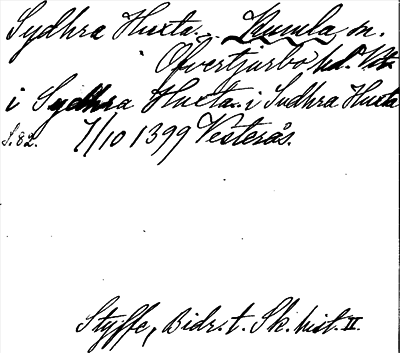 Sydhra Huxta. Kumla sn.
Öfvertjurbo hd. Vm.
i Sydhra Huxta. i Sudhra Huxta
S. 82. 7/10 1399 Vesterås.
Styffe, Bidr. t. Sk. hist. II.